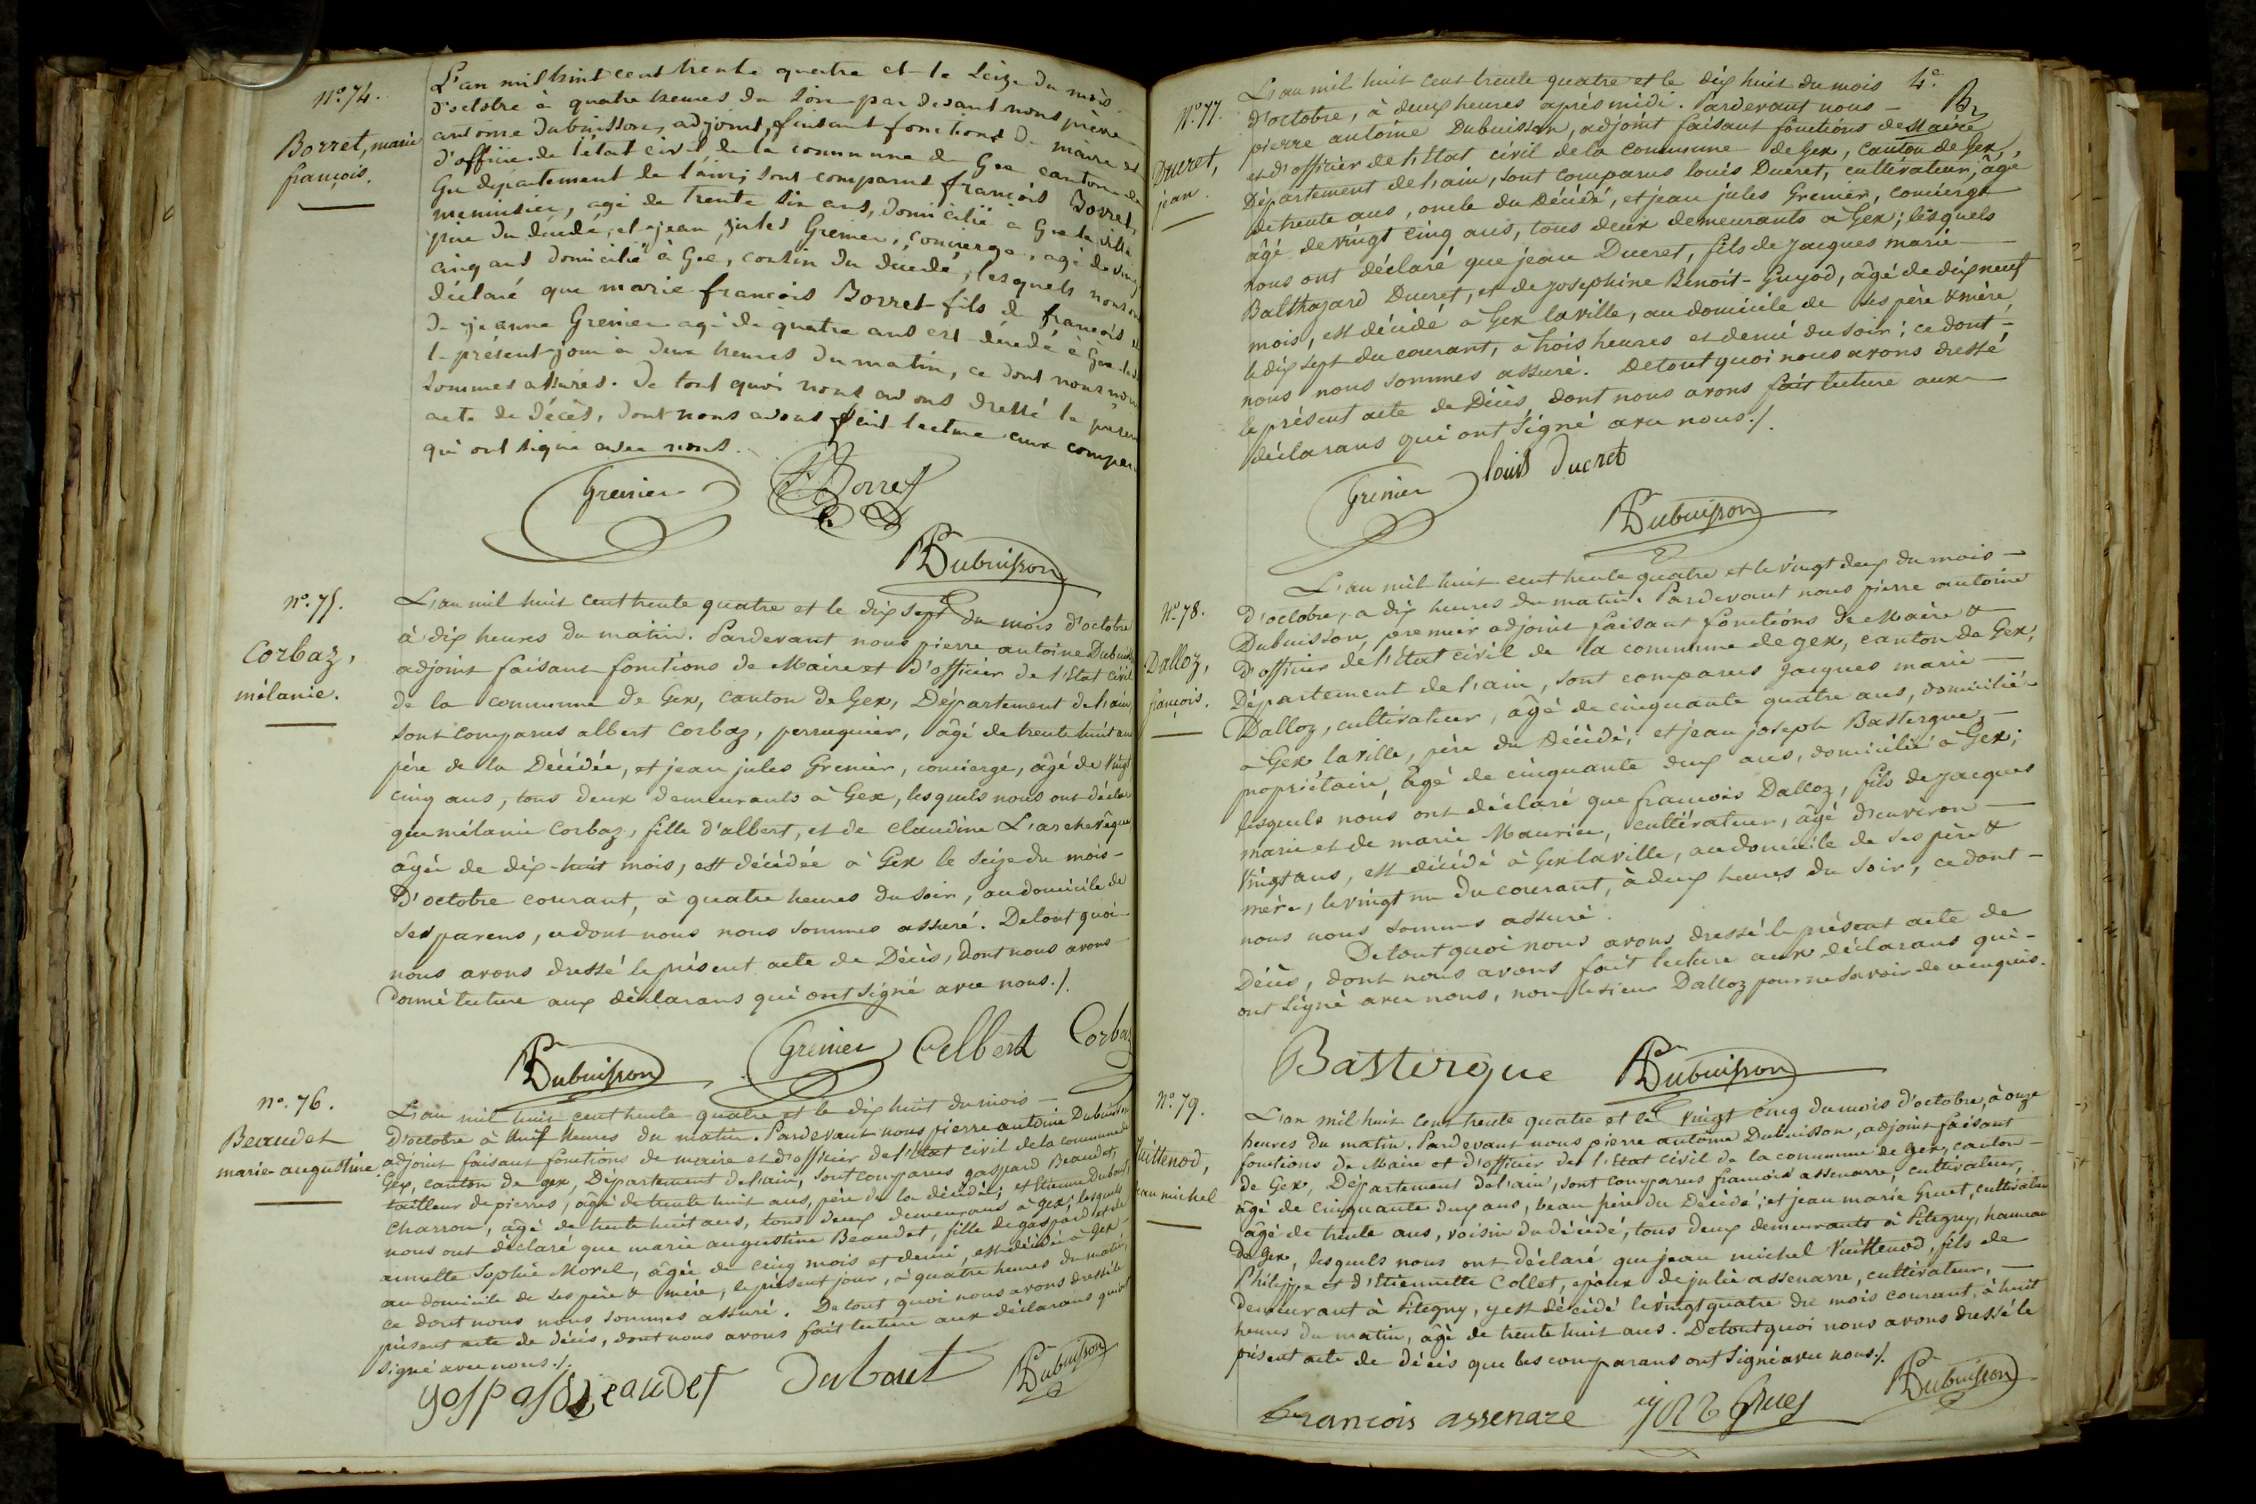 n.º 74.
Borret, marie
françois.
L'an mil huit cent trente quatre et le seize du mois
d'octobre à quatre heures du soir par devant nous pierre
antoine dubuisson, adjoint, faisant fonctions de maire et
d'officier de l'état civil de la commune de Gex canton de
Gex département de l'ain, sont comparus françois Borret,
menuisier, agé de trente six ans, domicilié à Gex la ville
père du décédé, et jean jules Grenier, concierge, agé de vingt
cinq ans domicilié à Gex, cousin du décédé, lesquels nous ont
déclaré que marie françois Borret fils de françois et
de jeanne Grenier agé de quatre ans est décédé à Gex la
le présent jour à deux heures du matin, ce dont nous nous
sommes assurés. De tout quoi nous avons dressé le présen
acte de décès, dont nous avons fait lecture aux compar
qui ont signé avec nous.
Grenier Borret
Dubuisson
n.º 75.
Corbaz,
mélanie.
L'an mil huit cent trente quatre et le dix sept du mois d'octobre
à dix heures du matin. Pardevant nous pierre antoine Dubuisson
adjoint faisant fonctions de Maire et d'officier de l'Etat civil
de la commune de Gex, canton de Gex, Département de l'ain,
sont comparus albert Corbaz, perruquier, âgé de trente huit ans
père de la Décédée, et jean jules Grenier, concierge, âgé de vingt
cinq ans, tous deux demeurants à Gex, lesquels nous ont déclaré
que mélanie Corbaz, fille d'albert, et de claudine L'archevêque
âgée de dix-huit mois, est décédée à Gex le seize du mois-
D'octobre courant, à quatre heures du soir, au domicile de
ses parens, ce dont nous nous sommes assuré. De tout quoi
nous avons dressé le présent acte de Décès, dont nous avons
donné lecture aux déclarans qui ont signé avec nous./.
Dubuisson Grenier Albert Corbaz
n.º 76.
Beaudet
marie-augustine
L'an mil huit cent trente quatre et le dix huit du mois —
d'octobre à huit heures du matin. Pardevant nous pierre antoine Dubuisson
adjoint faisant fonctions de maire et d'officier de l'Etat civil de la commune de
Gex, canton de gex, Département de l'ain, sont comparus gaspard Beaudet,
tailleur de pierres, âgé de trente huit ans, père de la décédée, et Etienne Dubout,
charron, âgé de trente huit ans, tous deux demeurans à gex; lesquels
nous ont déclaré que marie augustine Beaudet, fille de gaspard et de
annette Sophie Morel, âgée de cinq mois et demi, est décédée à Gex-
au domicile de ses père & mère, le présent jour, à quatre heures du matin,
ce dont nous nous sommes assuré. De tout quoi nous avons dressé le
présent acte de décès, dont nous avons fait lecture aux déclarans qui ont
signé avec nous./.
gaspard Beaudet Dubout Dubuisson
4.e
n.º 77.
Ducret,
jean.
L'an mil huit cent trente quatre et le dix huit du mois
d'octobre, à deux heures après midi. Pardevant nous —
pierre antoine Dubuisson, adjoint faisant fonctions de Maire
et d'officier de l'Etat civil de la commune de Gex, canton de Gex,
Département de l'ain, sont comparus louis Ducret, cultivateur, âgé
de trente ans, oncle du Décédé, et jean jules Grenier, concierge
âgé de vingt cinq ans, tous deux demeurants à Gex; lesquels
nous ont déclaré que jean Ducret, fils de jacques marie —
Balthazard Ducret, et de josephine Benoit-Guyod, âgé de dix neuf
mois, est décédé à Gex la ville, au domicile de ses père & mère,
le dix sept du courant, à trois heures et demi du soir; ce dont-
nous nous sommes assuré. De tout quoi nous avons dressé
le présent acte de Décès dont nous avons fait lecture aux
déclarans qui ont signé avec nous./.
Grenier louis ducret
Dubuisson
n.º 78.
Dalloz,
françois.
L'an mil huit cent trente quatre et le vingt deux du mois —
d'octobre, à dix heures du matin. Pardevant nous pierre antoine
Dubuisson, premier adjoint faisant fonctions de Maire &
d'officier de l'Etat civil de la commune de gex, canton de Gex,
Département de l'ain, sont comparus jacques marie —
Dalloz, cultivateur, âgé de cinquante quatre ans, domicilié
à Gex la ville, père du Décédé; et jean joseph Bastergue —
propriétaire, âgé de cinquante deux ans, domicilié à Gex;
lesquels nous ont déclaré que françois Dalloz, fils de jacques
marie et de marie Maurier, cultivateur, âgé d'environ —
vingt ans, est décédé à Gex la ville, au domicile de ses père &
mère, le vingt un du courant, à deux heures du soir, ce dont-
nous nous sommes assuré.
De tout quoi nous avons dressé le présent acte de
Décès, dont nous avons fait lecture aux déclarans qui-
ont signé avec nous, non le sieur Dalloz pour ne savoir de ce enquis.
Bastergue Dubuisson
n.º 79.
Vuittenod,
jean michel
L'an mil huit cent trente quatre et le vingt cinq du mois d'octobre, à onze
heures du matin. Pardevant nous pierre antoine Dubuisson, adjoint faisant
fonctions de Maire et d'officier de l'Etat civil de la commune de gex, canton —
de Gex, Département de l'ain, sont comparus françois assenarre, cultivateur,
âgé de cinquante deux ans, beau père du Décédé; et jean marie Gruet, cultivateur
âgé de trente ans, voisin du décédé, tous deux demeurants à Pitegny, hameau
de Gex, lesquels nous ont déclaré que jean michel Vuittenod, fils de
Philippe et d'Etiennette Collet, epoux de julie assenarre, cultivateur, —
demeurant à Pitegny, y est décédé le vingt quatre du mois courant, à huit
heures du matin, âgé de trente huit ans. De tout quoi nous avons dressé le
présent acte de décès que les comparans ont signé avec nous./.
francois assenare Dubuisson